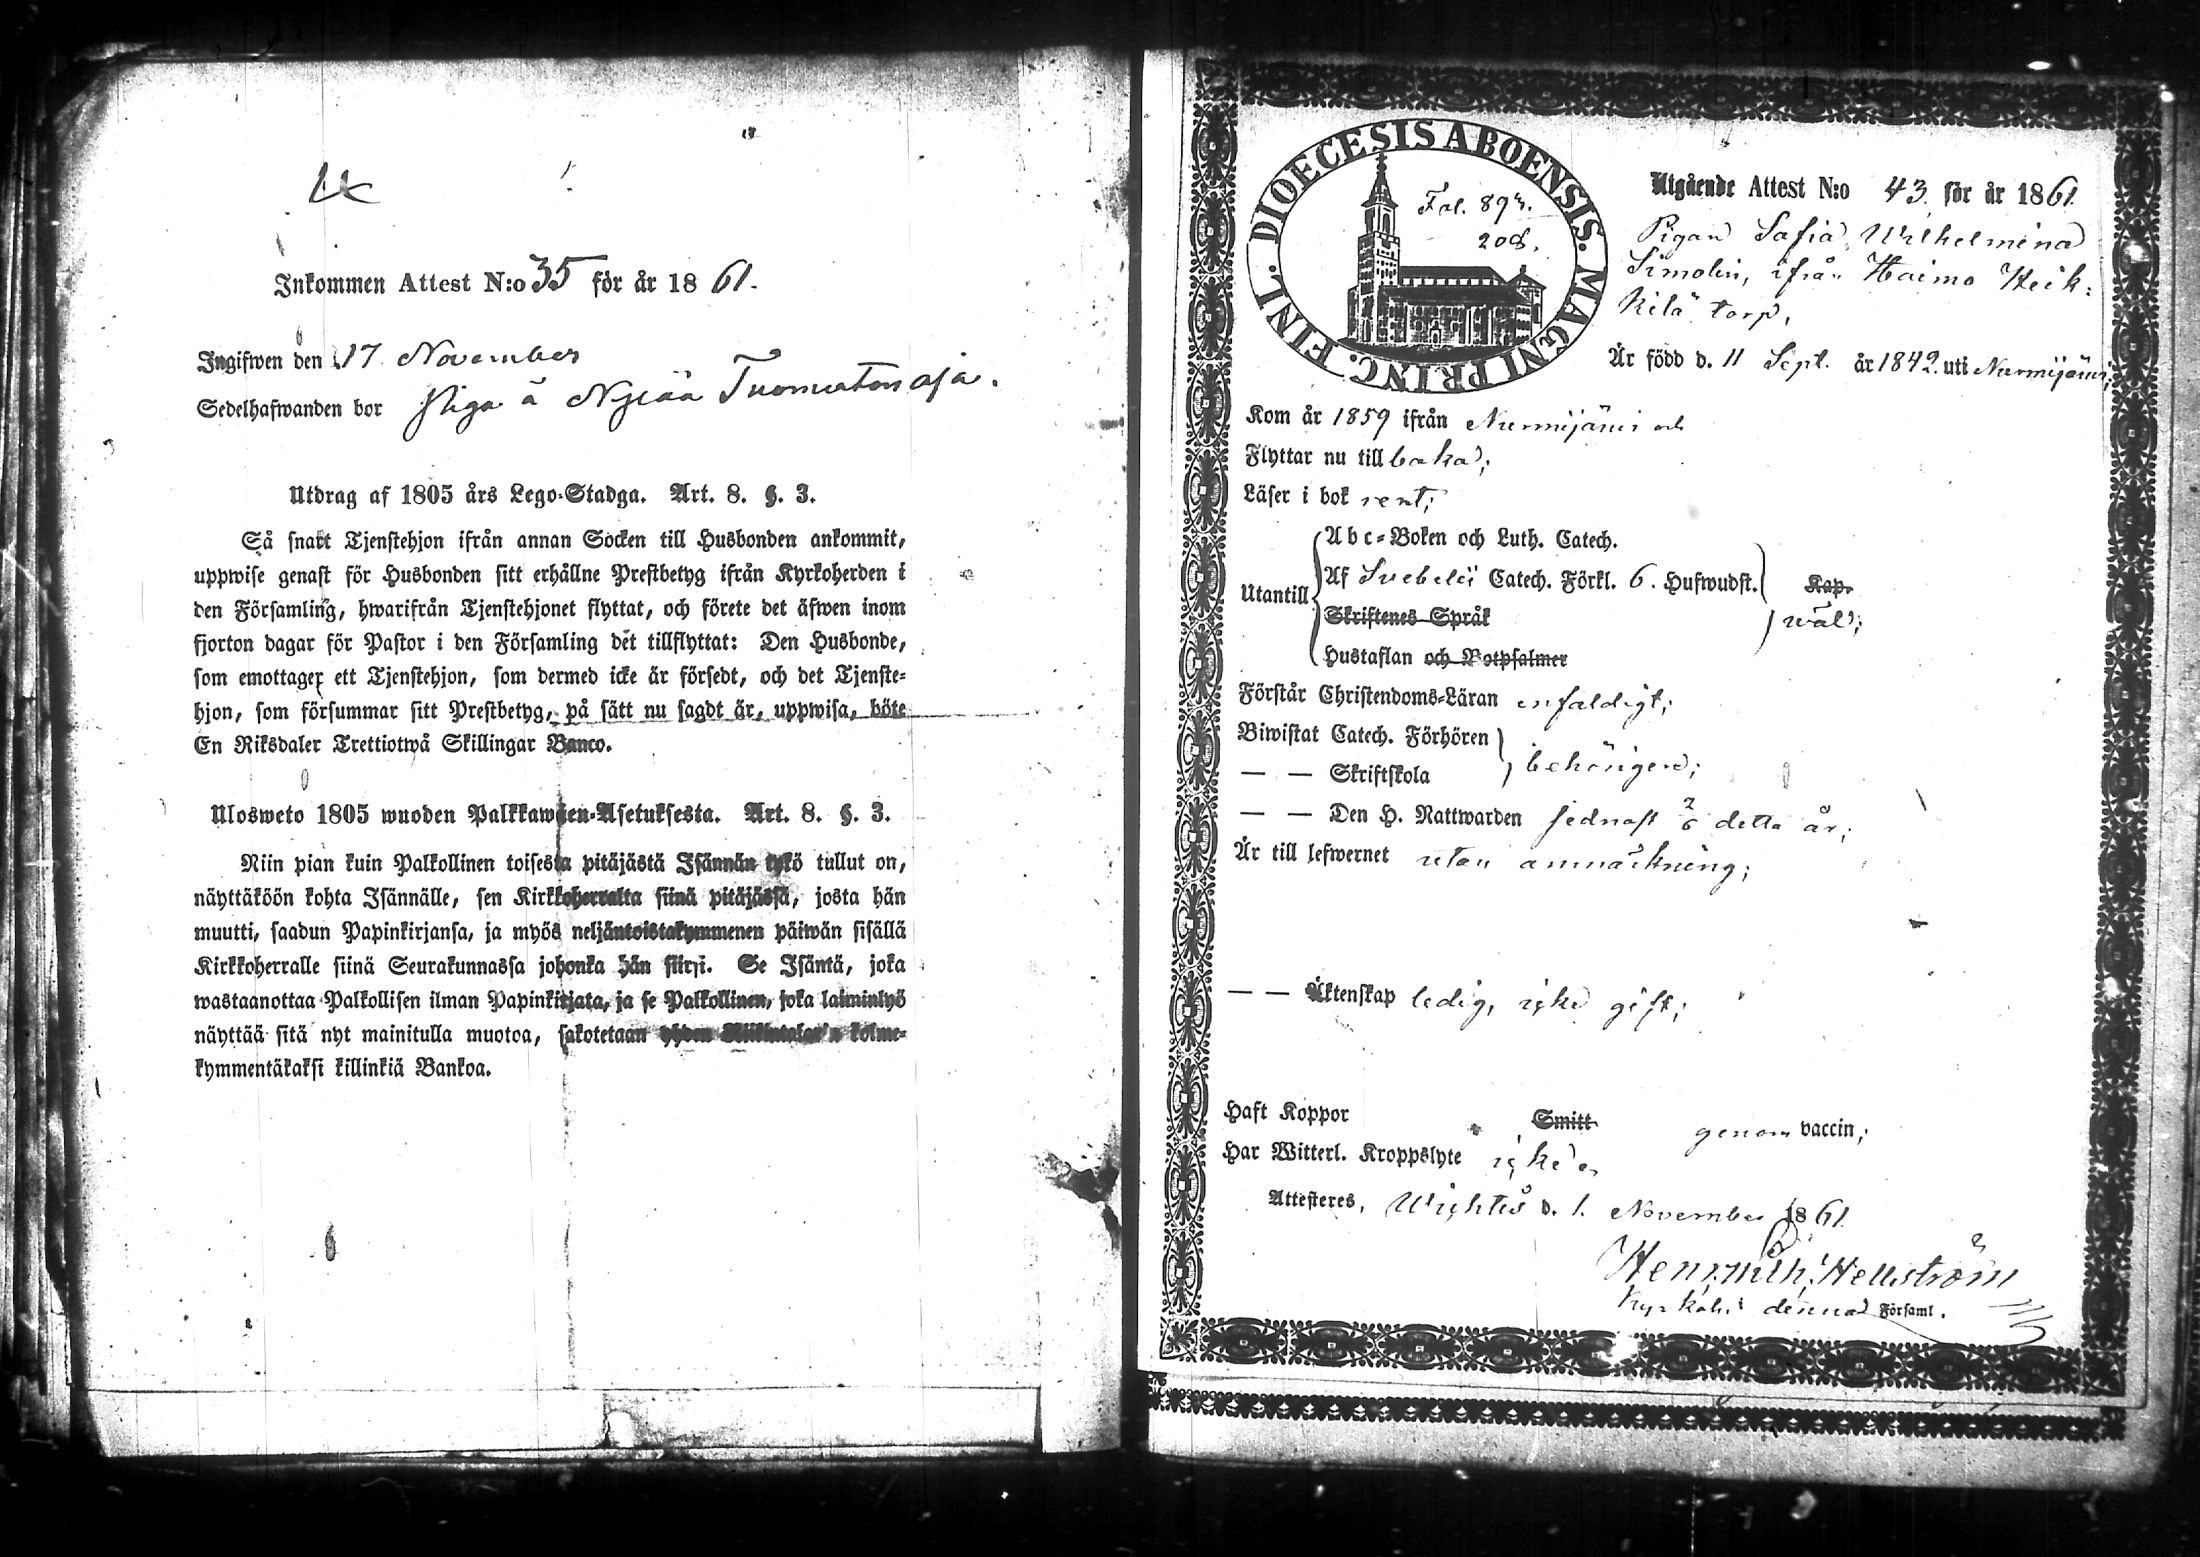 Inkommen Attest N:o 35 för år 1861.
Ingifwen den 17 November
Sedelhafwanden bor piga å Njeää Tuomistonoja.
Utdrag af 1805 års Lego-Stadga. Art. 8. §. 3.
Så snart Tjenstehjon ifrån annan Socken till Husbonden ankommit,
uppwise genast för Husbonden sitt erhållne Prestbetyg ifrån Kyrkoherden i
den Församling, hwarifrån Tjenstehjonet flyttat, och förete det äfwen inom
fjorton dagar för Pastor i den Församling det tillflyttat: Den Husbonde,
som emottager ett Tjenstehjon, som dermed icke är försedt, och det Tjenste-
hjon, som försummar sitt Prestbetyg, på sätt nu sagdt är, uppwisa, böte
En Riksdaler Trettiotwå Skillingar Banco.
Ulosweto 1805 wuoden Palkkawäen-Asetuksesta. Art. 8. §. 3.
Niin pian kuin Palkollinen toisesta pitäjästä Isännän tykö tullut on,
näyttäköön kohta Isännälle, sen Kirkkoherralta siinä pitäjässä, josta hän
muutti, saadun Papinkirjansa, ja myös neljäntoistakymmenen päiwän sisällä
Kirkkoherralle siinä Seurakunnassa johonka hän siirsi. Se Isäntä, joka
wastaanottaa Palkollisen ilman Papinkirjata, ja se Palkollinen, joka laiminlyö
näyttää sitä nyt mainitulla muotoa, sakotetaan yhden Riikintalar'n kolme-
kymmentäkaksi killinkiä Bankoa.
DIOECESIS ABOENSIS. MAGNI PRINC. FINL.
Fol. 893.
208.
Utgående Attest N:o 43 för år 1861.
Pigan Sofia Wilhelmina
Simolin, ifrån Haimo Heik-
kilä torp,
Är född d. 11 Sept. år 1842. uti Nurmijärvi;
Kom år 1859 ifrån Nurmijärvi och
Flyttar nu tillbaka;
Läser i bok rent;
Utantill
Abc-Boken och Luth. Catech.
Af Svebelii Catech. Förkl. 6. Hufwudst.
Kap.
Skriftenes Språk
wäl;
Hustaflan och Botpsalmer
Förstår Christendoms-Läran enfaldigt;
Biwistat Catech. Förhören
— — Skriftskola
behörigen;
— — Den H. Nattwarden sednast detta år;
Är till lefwernet utan anmärkning;
— — Äktenskap ledig, icke gift;
Haft Koppor Smitt genom vaccin;
Har Witterl. Kroppslyte icke
Attesteres, Wichtis d. 1. November 1861.
Hellström
Kyrkoh. i denna Församl.